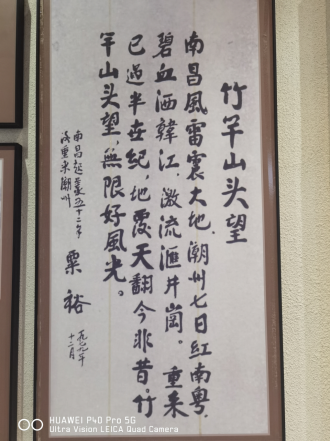 竹竿山头望
南昌風雷震大地，潮州七日红南粤
碧血洒韓江，激流滙井崗。重来
已過半世紀，地覆天翻今非昔。竹
竿山头望，無限好風光。
南昌起義五十二年
後重来潮州
粟裕
一九七九年
十二月
HUAWEI P40 Pro 5G
Ultra Vision LEICA Quad Camera